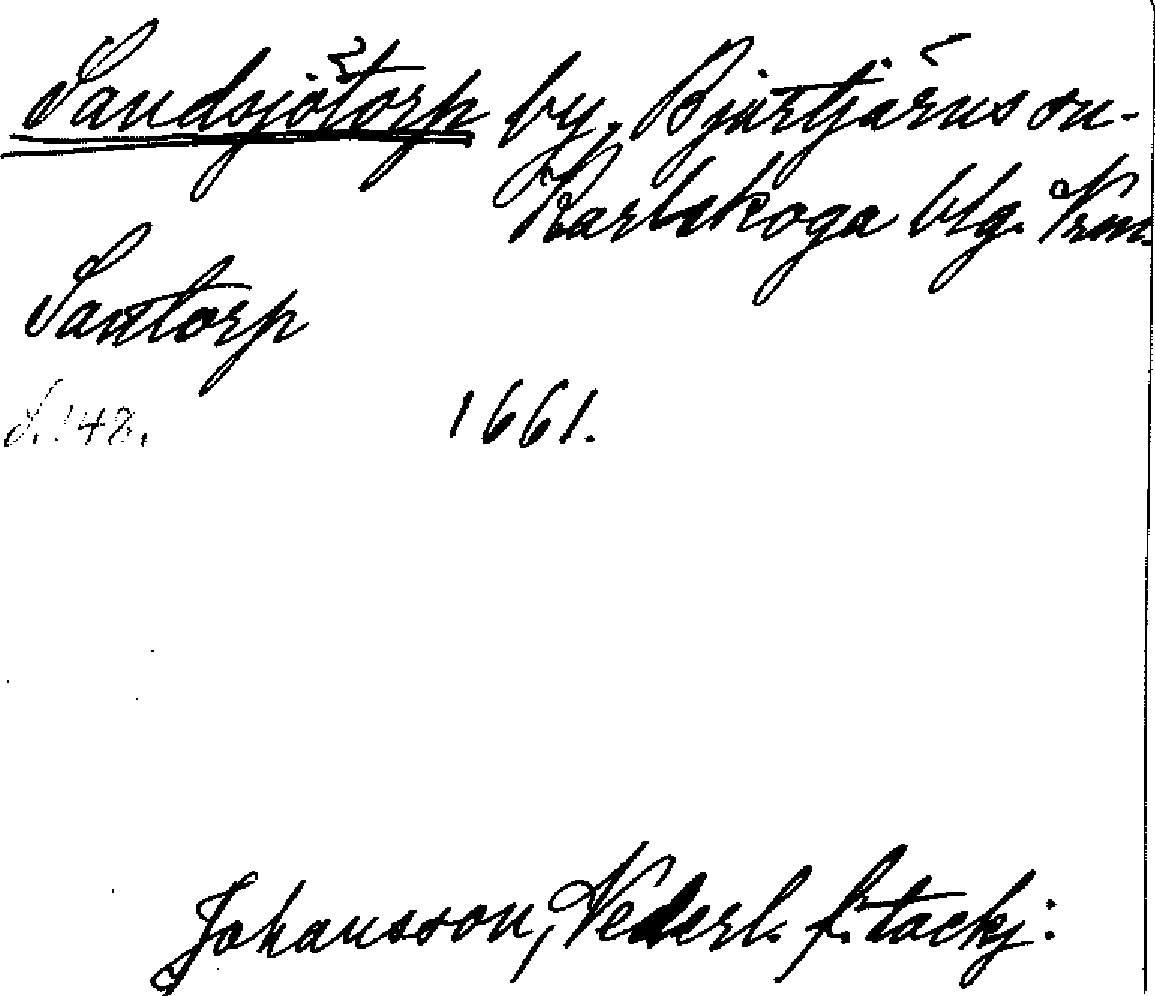 Sandsjötorp by, Bjurtjärns sn.
Karlskoga blg. Vrm.
Santorp
S. 148. 1661.
Johansson, Nederl. f. tackj: